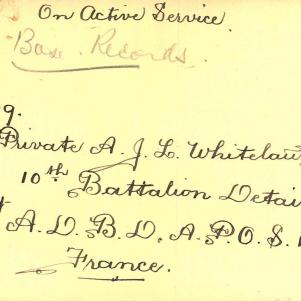 On Active Service.
Base Records.
9.
Private A. J. L. Whitelaw
10th Battalion Detai
A. D. B. D. A. P. O. S.
France.